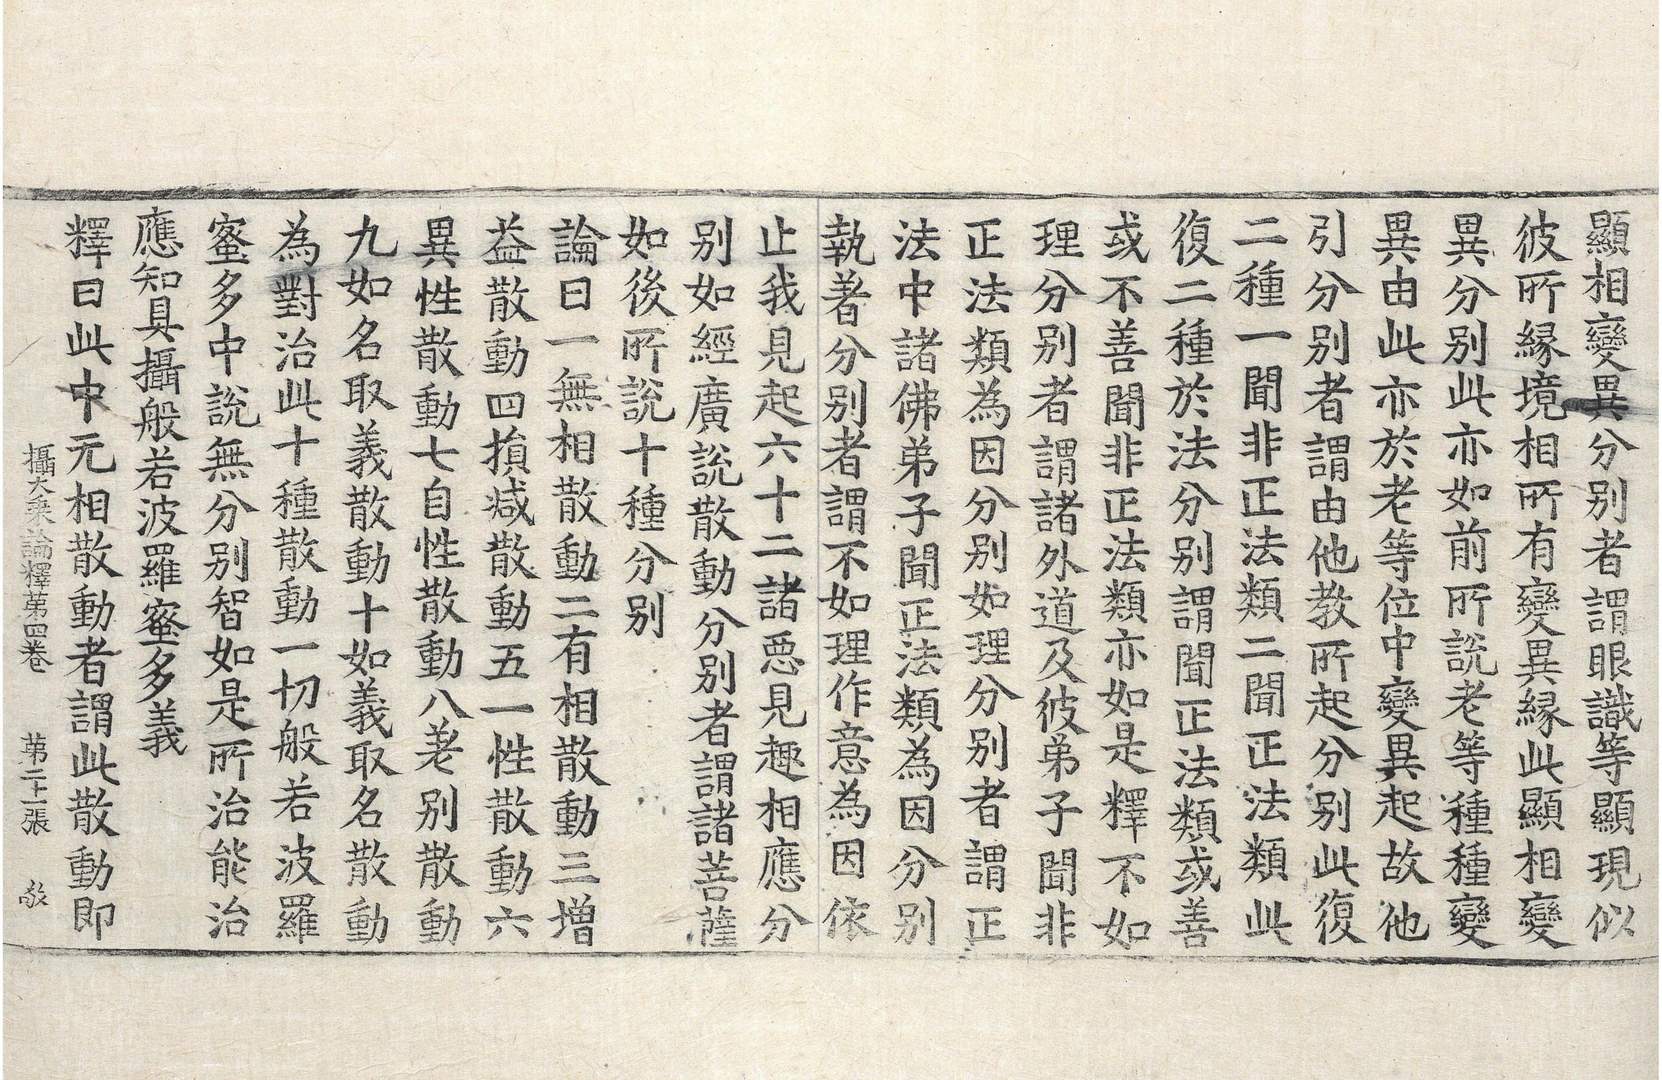 顯相變異分別者謂眼識等顯現似
彼所縁境相所有變異縁此顯相變
異分別此亦如前所說老等種種變
異由此亦於老等位中變異起故他
引分別者謂由他教所起分別此復
二種一聞非正法類二聞正法類此
復二種於法分別謂聞正法類或善
或不善聞非正法類亦如是釋不如
理分別者謂諸外道及彼弟子聞非
正法類為因分別如理分別者謂正
法中諸佛弟子聞正法類為因分別
執著分別者謂不如理作意為因依
止我見起六十二諸惡見趣相應分
別如經廣說散動分別者謂諸菩薩
如後所說十種分別
論曰一無相散動二有相散動三增
益散動四損減散動五一性散動六
異性散動七自性散動八差別散動
九如名取義散動十如義取名散動
為對治此十種散動一切般若波羅
蜜多中說無分別智如是所治能治
應知具攝般若波羅蜜多義
釋曰此中无相散動者謂此散動即
攝大乘論釋第四卷 第二十一張 敬